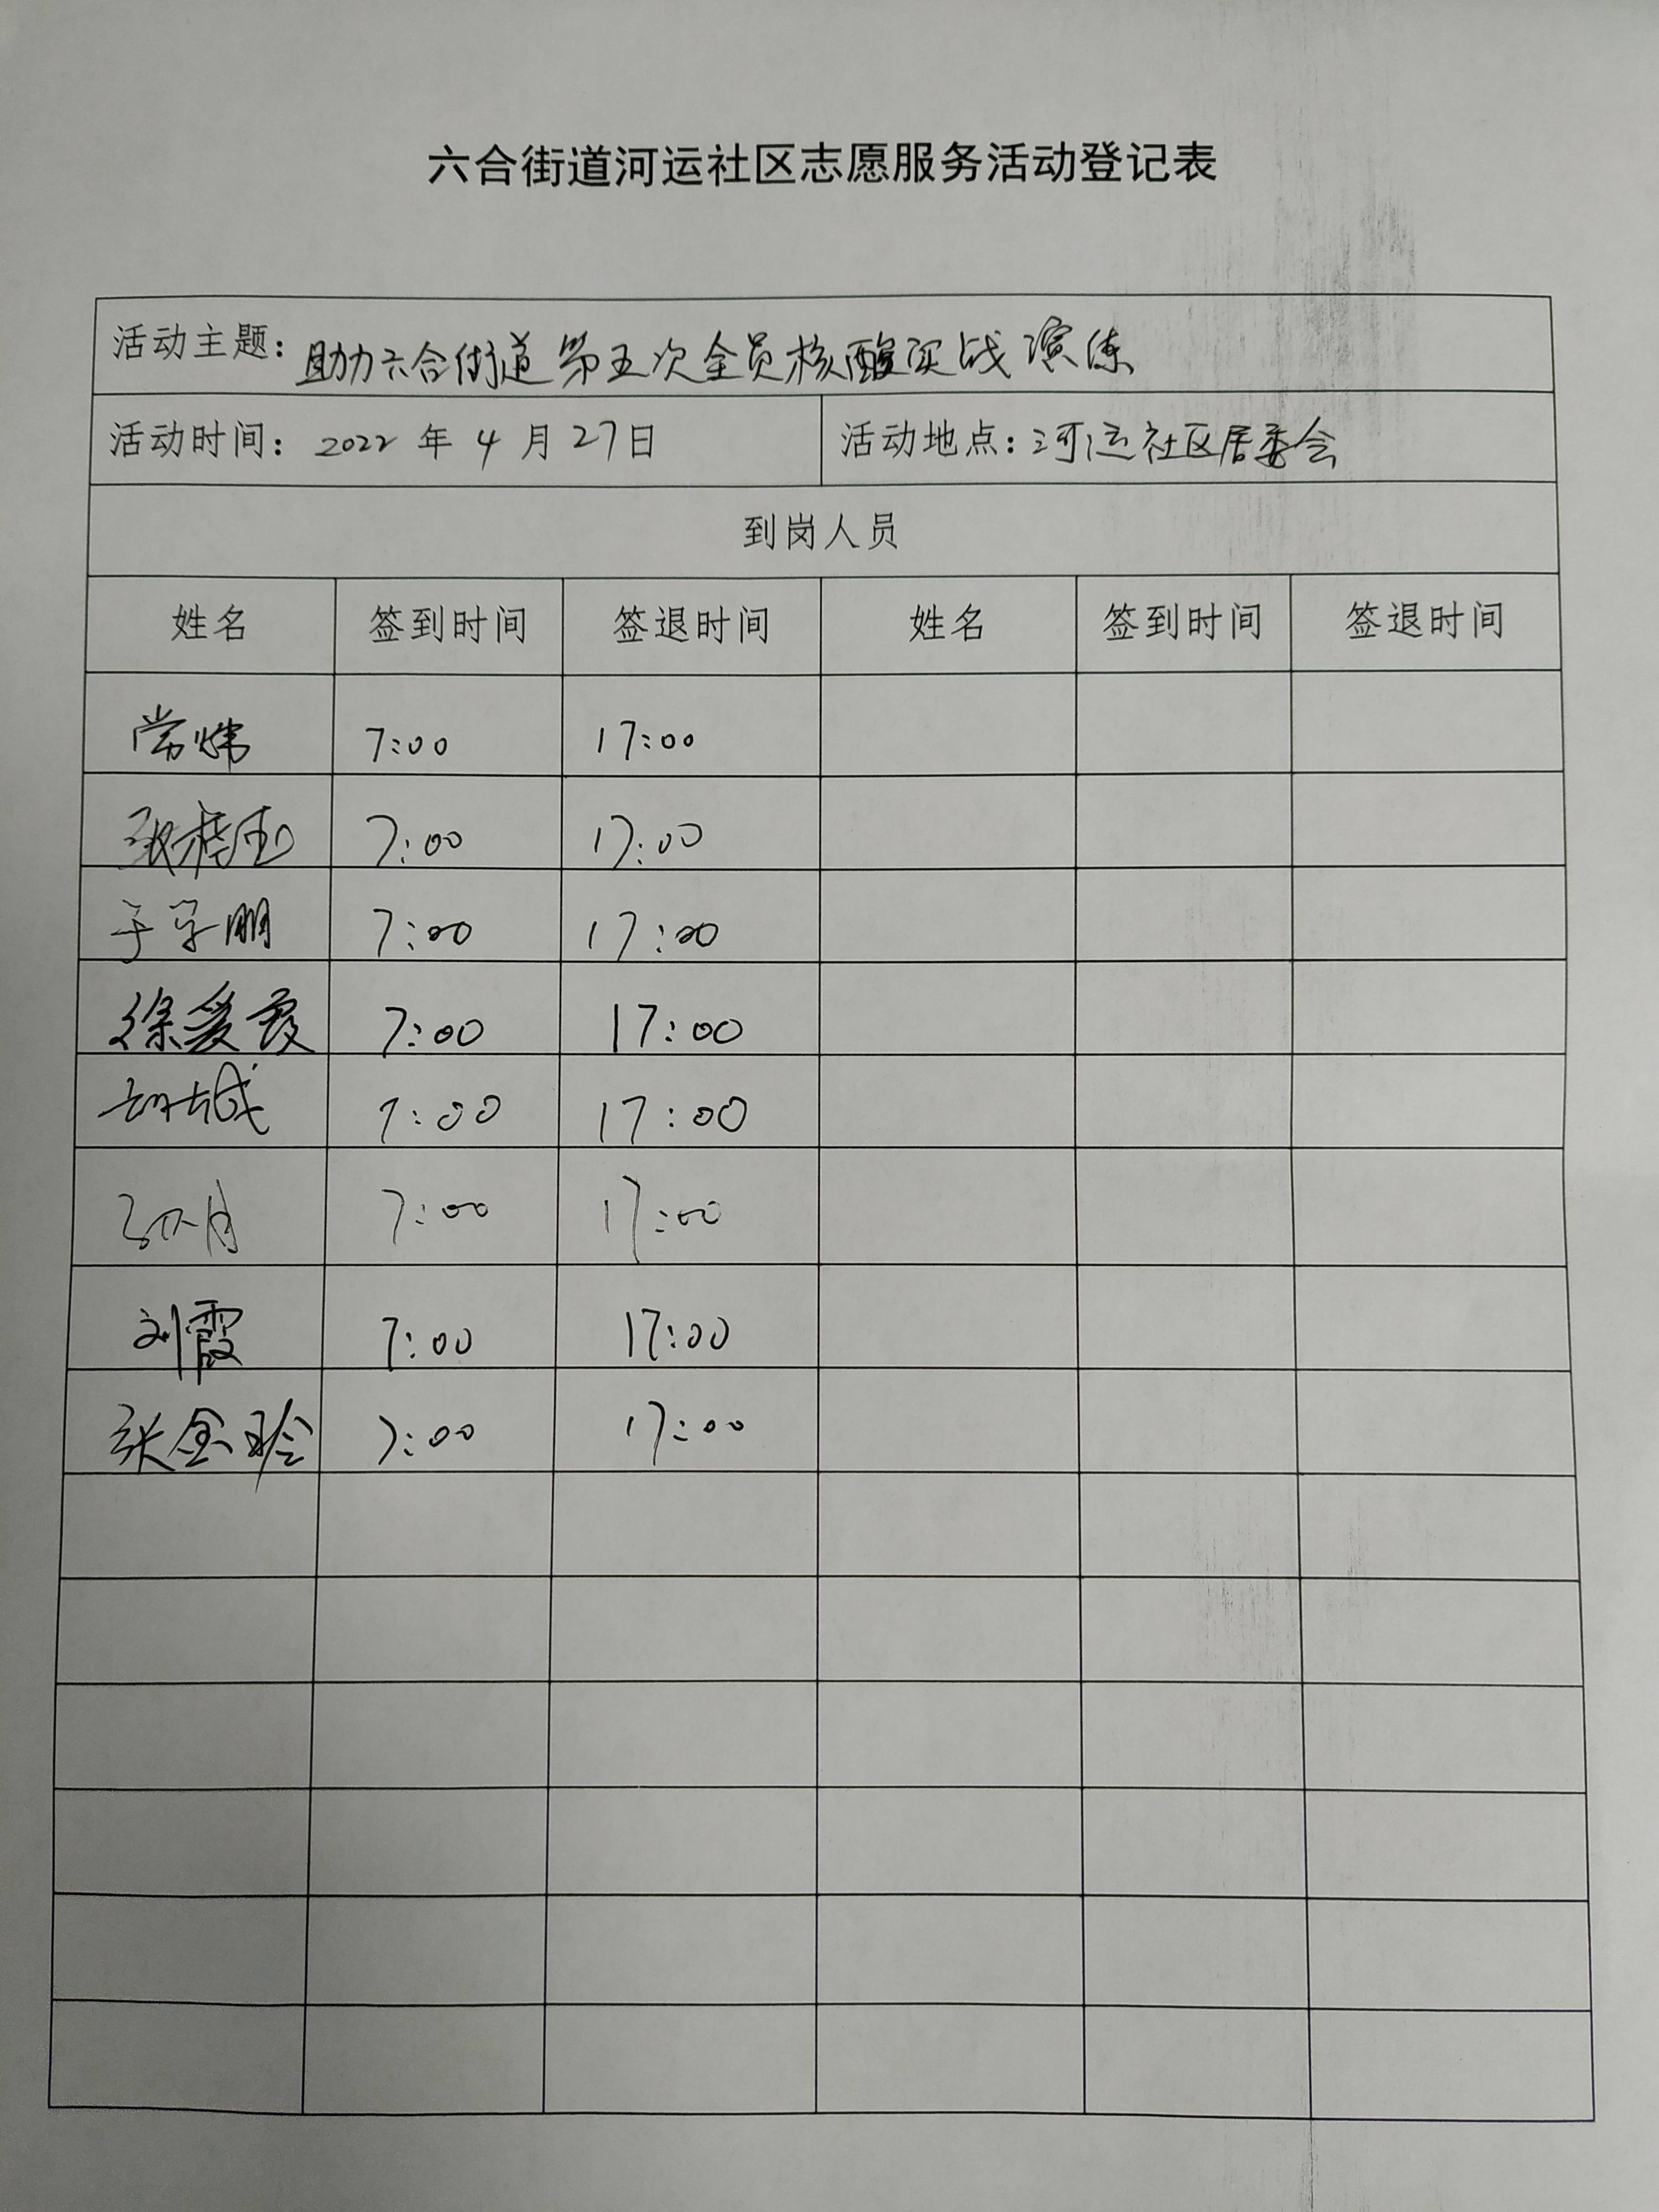 六合街道河运社区志愿服务活动登记表
活动主题：助力六合街道第五次全员核酸实战演练
活动时间：2022年4月27日 活动地点：河运社区居委会
到岗人员
姓名 签到时间 签退时间 姓名 签到时间 签退时间
常炜 7:00 17:00
7:00 17:00
于学朋 7:00 17:00
徐爱霞 7:00 17:00
7:00 17:00
7:00 17:00
刘霞 7:00 17:00
张金玲 7:00 17:00